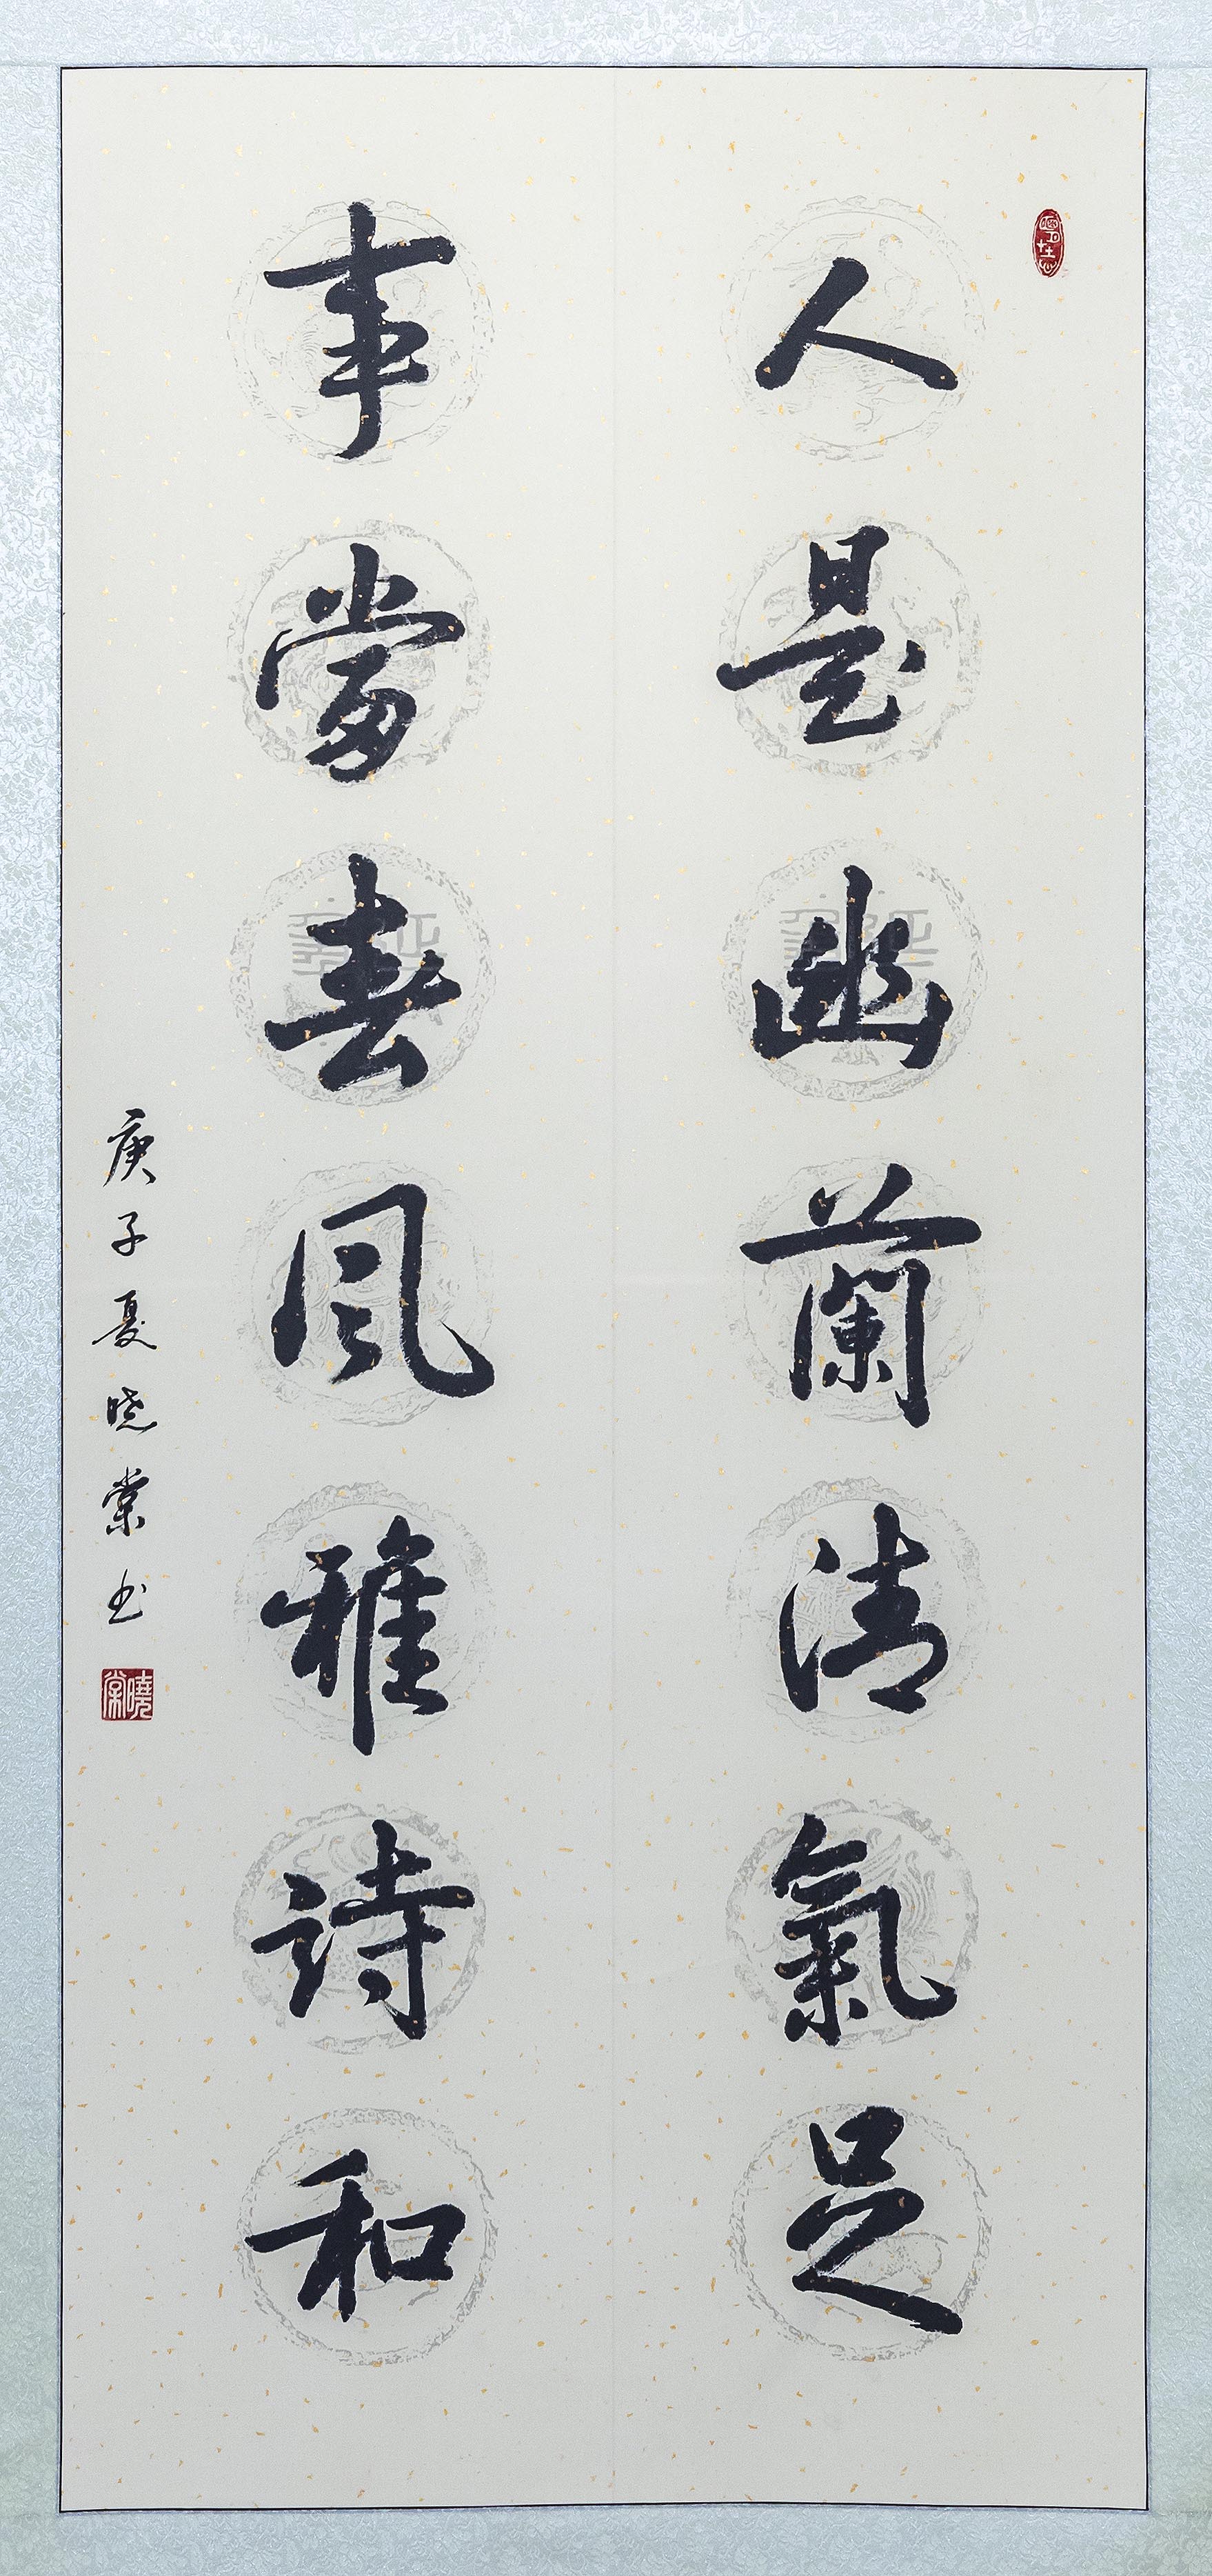 人是幽蘭清氣足
事當春風雅詩和
庚子夏曉棠书
曉棠